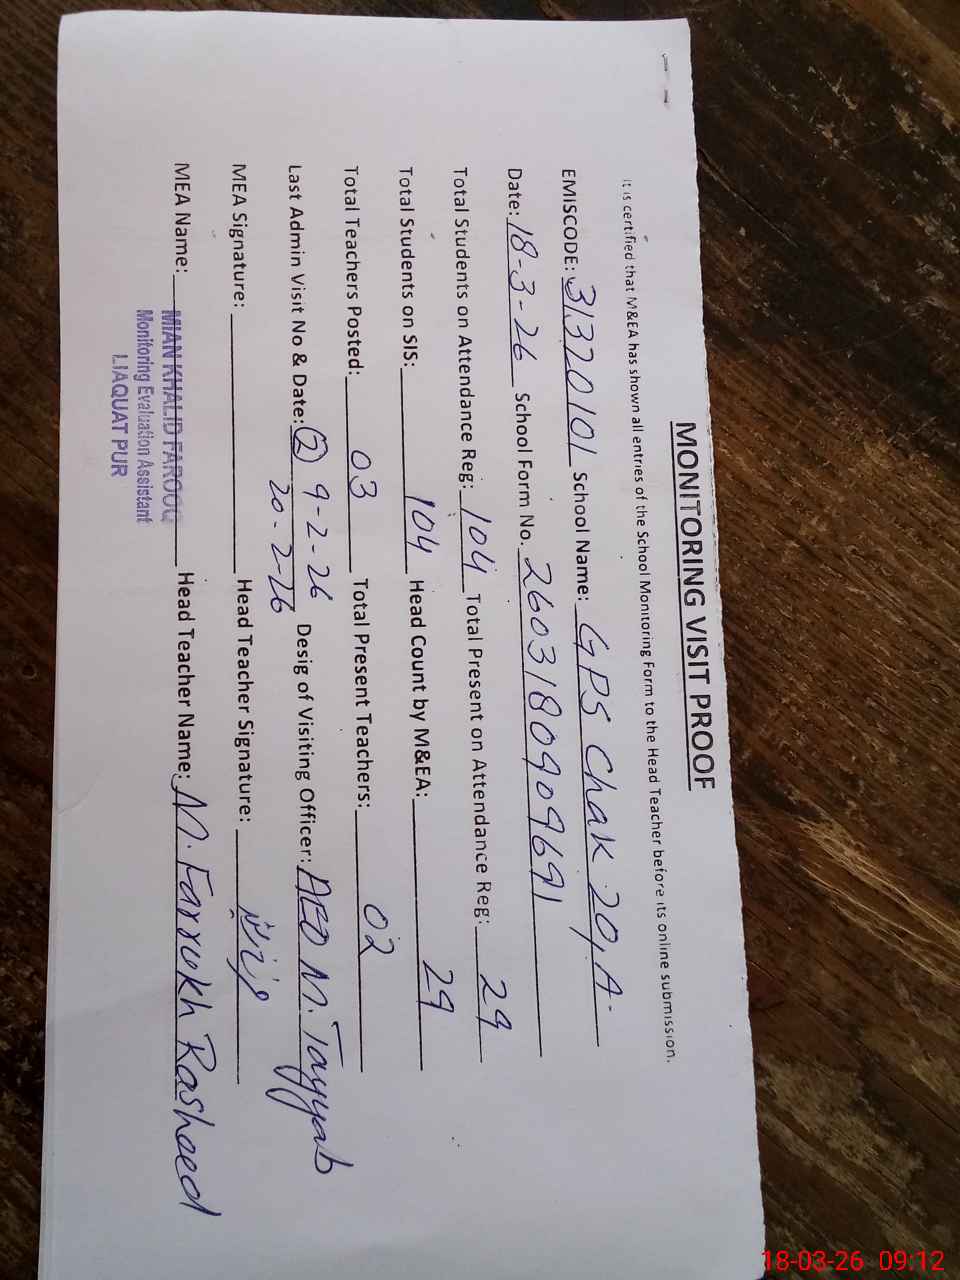 MONITORING VISIT PROOF
It is certified that M&EA has shown all entries of the School Monitoring Form to the Head Teacher before its online submission.
EMISCODE: 31320101 School Name: GPS Chak 20, A.
Date: 18-3-26 School Form No. 260318090969691
Total Students on Attendance Reg: 104 Total Present on Attendance Reg: 29
Total Students on SIS: 104 Head Count by M&EA: 29
Total Teachers Posted: 03 Total Present Teachers: 02
Last Admin Visit No & Date: (2) 9-2-26 Desig of Visiting Officer: AEO M. Tayyab
20-2-26
MEA Signature: Head Teacher Signature:
MEA Name: MIAN KHALID FAROOQ Head Teacher Name: M. Farrukh Rasheed
Monitoring Evaluation Assistant
LIAQUAT PUR
18-03-26 09:12